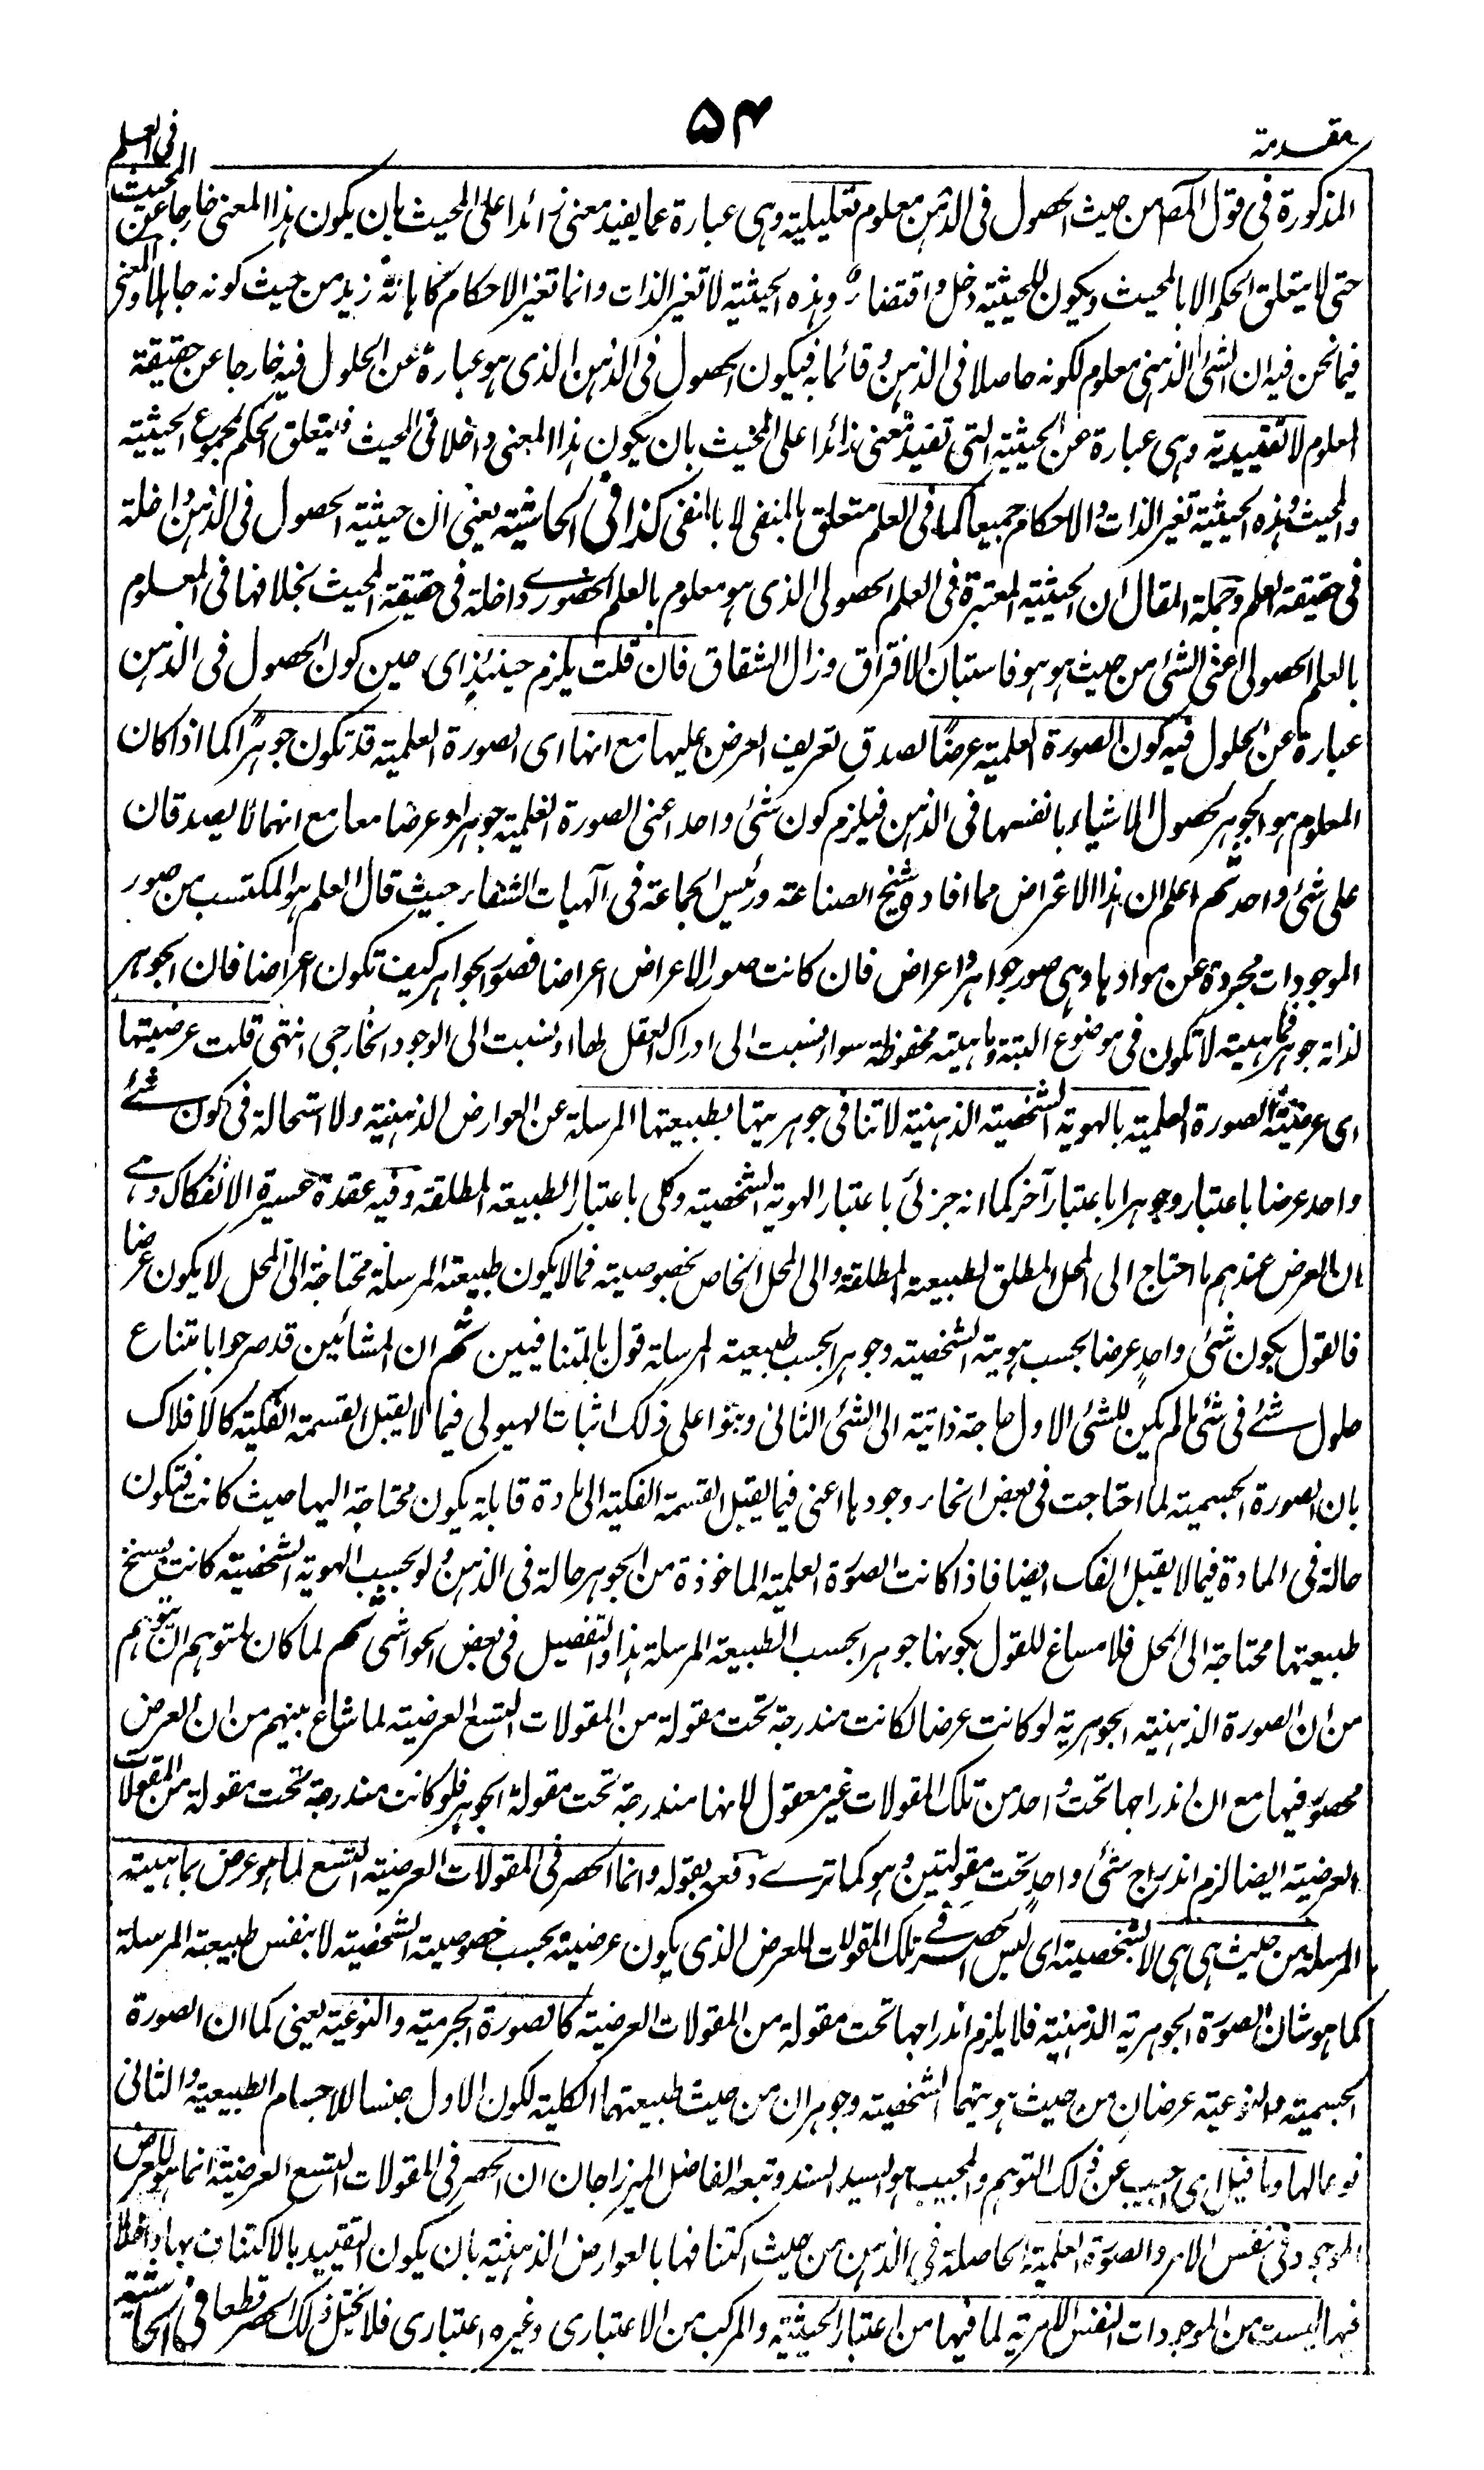 مقدمة
۵۴
في العلم
المذكورة في قول المص من حيث الحصول في الذهن معلوم تعليلية وهي عبارة عما يفيد معنى زائدا على المحيث بان يكون هذا المعنى خارجا عن المحيث
حتى لا يتعلق الحكم الا بالمحيث ويكون للحيثية دخل واقتضاء وهذه الحيثية لا تغير الذات وانما تغير الاحكام كاهانة زيد من حيث كونه جاهلا والمعنى
فيما نحن فيه ان الشئ الذهني معلوم لكونه حاصلا في الذهن وقائما به فيكون الحصول في الذهن الذي هو عبارة عن الحلول فيه خارجا عن حقيقة
المعلوم لا تقييدية وهي عبارة عن الحيثية التي تفيد معنى زائدا على المحيث بان يكون هذا المعنى داخلا في المحيث فيتعلق الحكم بمجموع الحيثية
والمحيث وهذه الحيثية تغير الذات والاحكام جميعا كما في العلم متعلق بالمنفي لا بالنفي كذا في الحاشية يعني ان حيثية الحصول في الذهن داخلة
في حقيقة العلم وجملة المقال ان الحيثية المعتبرة في العلم الحصولي الذي هو معلوم بالعلم الحضوري داخلة في حقيقة المحيث بخلافها في المعلوم
بالعلم الحصولي اعني الشئ من حيث هو هو فاستبان الافتراق وزال الشقاق فان قلت يلزم حينئذ اي حين كون الحصول في الذهن
عبارة عن الحلول فيه كون الصورة العلمية عرضا لصدق تعريف العرض عليها مع انها اي الصورة العلمية قد تكون جوهرا كما اذا كان
المعلوم هو الجوهر لحصول الاشياء بانفسها في الذهن فيلزم كون شئ واحد اعني الصورة العلمية جوهرا وعرضا معا مع انهما لا يصدقان
على شئ واحد ثم اعلم ان هذا الاعتراض مما افاده شيخ الصناعة ورئيس الجماعة في آلهيات الشفاء حيث قال العلم هو المكتسب من صور
الموجودات مجردة عن موادها وهي صور جواهر واعراض فان كانت صور الاعراض اعراضا فصور الجواهر كيف تكون اعراضا فان الجوهر
لذاته جوهر فماهيته لا تكون في موضوع البتة وماهيته محفوظة سواء نسبت الى ادراك العقل لها او نسبت الى الوجود الخارجي انتهى قلت عرضيتها
اي عرضية الصورة العلمية بالهوية الشخصية الذهنية لا تنافي جوهريتها بطبيعتها المرسلة عن العوارض الذهنية ولا استحالة في كون شئ
واحد عرضا باعتبار وجوهرا باعتبار آخر كما انه جزئي باعتبار الهوية الشخصية وكلي باعتبار الطبيعة المطلقة وفيه عقدة عسيرة الانفكاك وهي
ان العرض عندهم ما احتاج الى المحل المطلق لطبيعته المطلقة والى المحل الخاص لخصوصيته فما لا يكون طبيعته المرسلة محتاجة الى المحل لا يكون عرضا
فالقول بكون شئ واحد عرضا بحسب هويته الشخصية وجوهرا بحسب طبيعته المرسلة قول بالمتنافيين ثم ان المشائين قد صرحوا بامتناع
حلول شئ في شئ ما لم يكن للشئ الاول حاجة ذاتية الى الشئ الثاني وبنوا على ذلك اثبات الهيولى فيما لا يقبل القسمة الفكية كالافلاك
بان الصورة الجسمية لما احتاجت في بعض انحاء وجودها اعني فيما يقبل القسمة الفكية الى مادة قابلة يكون محتاجة اليها حيث كانت فتكون
حالة في المادة فيما لا يقبل الفك ايضا فاذا كانت الصورة العلمية الماخوذة من الجوهر حالة في الذهن ولو بحسب الهوية الشخصية كانت بسنخ
طبيعتها محتاجة الى المحل فلا مساغ للقول بكونها جوهرا بحسب الطبيعة المرسلة هذا والتفصيل في بعض الحواشي ثم لما كان لمتوهم ان يتوهم
من ان الصورة الذهنية الجوهرية لو كانت عرضا لكانت مندرجة تحت مقولة من المقولات التسع العرضية لما شاع بينهم من ان العرض
محصور فيها مع ان اندراجها تحت واحد من تلك المقولات غير معقول لانها مندرجة تحت مقولة الجوهر فلو كانت مندرجة تحت مقولة من المقولات
العرضية ايضا لزم اندراج شئ واحد تحت مقولتين وهو كما ترى دفعه بقوله وانما الحصر في المقولات العرضية التسع لما هو عرض بماهيته
المرسلة من حيث هي هي لا الشخصية اي ليس الحصر في تلك المقولات للعرض الذي يكون عرضيته بحسب خصوصيته الشخصية لا بنفس طبيعته المرسلة
كما هو شان الصورة الجوهرية الذهنية فلا يلزم اندراجها تحت مقولة من المقولات العرضية كالصورة الجرمية والنوعية يعني كما ان الصورة
الجسمية والنوعية عرضان من حيث هويتهما الشخصية وجوهران من حيث طبيعتهما الكلية لكون الاول جنسا للاجسام الطبيعية والثاني
نوعا لها وما قيل اي اجيب عن ذلك التوهم والمجيب هو السيد السند وتبعه الفاضل الميرزاجان ان الحصر في المقولات التسع العرضية انما هو للعرض
الموجود في نفس الامر والصورة العلمية الحاصلة في الذهن من حيث اكتنافها بالعوارض الذهنية بان يكون التقييد بالاكتناف بها داخلا
فيها ليست من الموجودات النفس الامرية لما فيها من اعتبار الحيثية والمركب من الاعتباري وغيره اعتباري فلا يختل ذلك الحصر قطعا في الحاشية